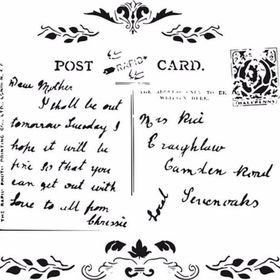 POST CARD.
RAPID
THE ADDRESS ONLY TO BE
WRITTEN HERE.
HALFPENNY
THE RAPID PHOTO PRINTING CO., LTD., LONDON, E.C.
Dear Mother
I shall be out
tomorrow Tuesday I
hope it will be
fine so that you
can get out with
love to all from
Chrissie
Mrs Rice
Craighlaw
Camden Road
Sevenoaks
Local